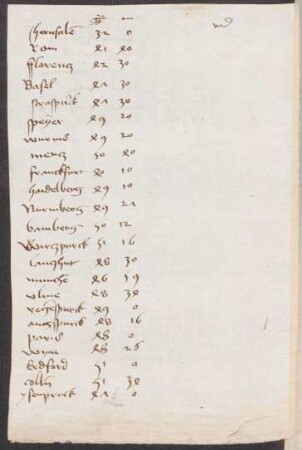 g m
Jherusalem 32 0
Rom 41 40
fflorentz 42 30
Basel 47 30
Straspurk 47 30
Speyer 49 20
Wurms 49 20
Mentz 50 40
Franckfurt 40 10
Haidelberg 49 10
Nurmberg 49 24
Bamberg 50 12
Wurtzpurck 51 16
Lanczhut 48 30
Munchē 46 19
Ulme 48 34
Regēspurck 49 0
Augspurck 48 16
Paris 48 0
Wyne 48 26
51 0
Colln 51 34
47 0